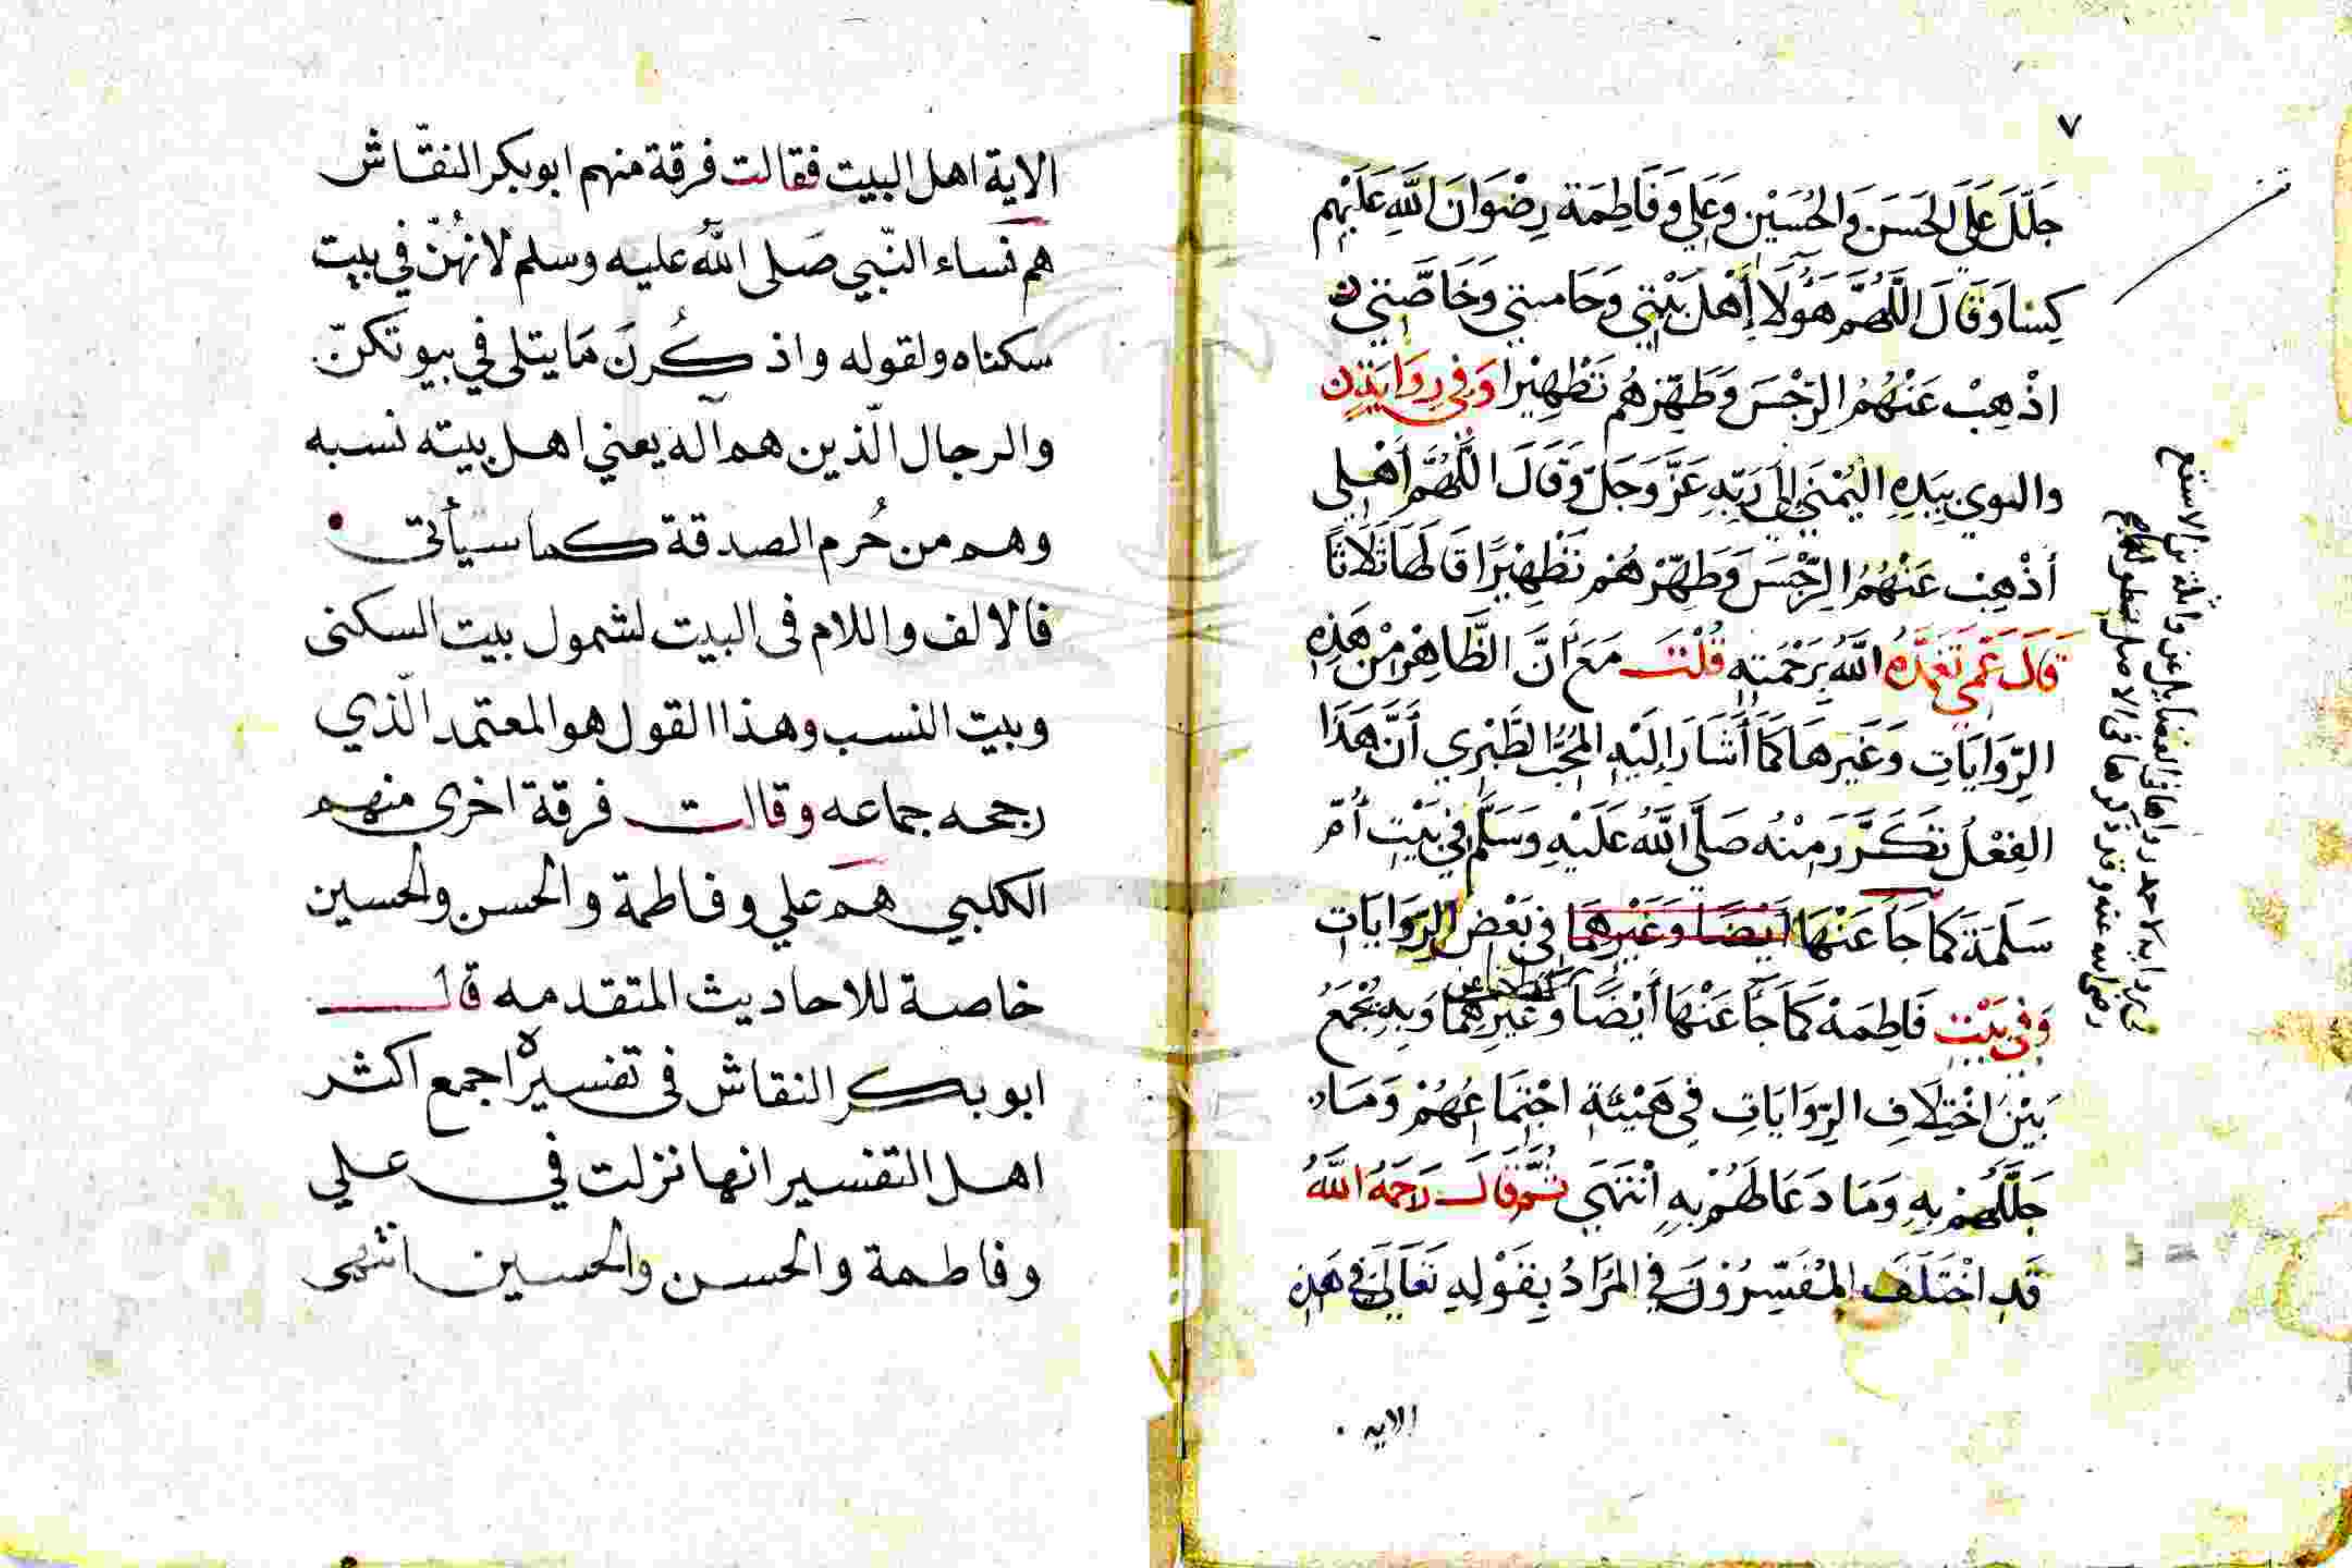 ٧
جَلَّلَ عَلَى الحَسَنِ وَالحُسَيْنِ وَعَلِي وَفَاطِمَة رِضْوَانَ اللَّهِ عَلَيْهِم
كِسَا وَقَالَ اللَّهُمَّ هَؤُلَا أَهْلَ بَيْتِي وَحَامتِي وَخَاصَّتِي
اذْهِبْ عَنْهُمُ الرِّجْسَ وَطَهِّرْهُم تَطْهِيْرا وَفِي رِوَايَةٍ
والوي بِيَدِهِ اليُمْنَي إِلَي رَبِّهِ عَزَّ وَجَلّ وَقَالَ اللَّهُمَّ أَهْلِي
أَذْهِبْ عَنْهُمُ الرِّجْسَ وَطَهِّرْهُمْ تَطْهِيْرًا قَالَهَا ثَلَاثًا
قَالَ عَمِّي تَغَمَّدَهُ اللَّهُ بِرَحْمَتِهِ قُلْتُ مَعَ أَنَّ الظَّاهِرَ مِنْ هَذِهِ
الرِّوَايَاتِ وَغَيرِهَا كَمَا أَشَارَ إِلَيْهِ المُحُبُّ الطَّبَرِي أَنَّ هَذَا
الفِعْلُ تَكَرَّرَ مِنْهُ صَلَّى اللَّهُ عَلَيْهِ وَسَلَّم فِي بَيْتِ أُمِّ
سَلَمَةَ كما جَا عَنْهَا أَيْضًا وَغَيْرِهِمَا فِي بَعْضِ الرِّوَايَاتِ
وَفِي بَيْتِ فَاطِمَهْ كَمَا جَا عَنْهَا أَيْضًا وَغَيْرِهِمَا وَبِهِ يُجْمَعُ
بَيْنَ اخْتِلَافِ الرِّوَايَاتِ فِي هَيْئَةِ اجْتِمَاعِهُمْ وَمَا
جَلَّلَهُمْ بِهِ وَمَا دَعَا لَهُمْ بِهِ انْتَهَي ثُمَّ قَالَ رَحِمَهُ اللَّهُ
قَدِ اخْتَلَفَ المُفَسِّرُوْنَ فِي المُرَادُ بِقَوْلِهِ تَعَالَى فِي هَذِهِ
الايه
الاية اهل البيت فقالت فرقة منهم ابو بكر النقّاش
هم نساء النّبي صَلى اللَّه عليه وسلم لانهُنّ في بيت
سكناه ولقوله واذكُرنَ مَا يتلى في بيوتكنّ
والرجال الّذين هم آله يعني اهل بيته نسبه
وهم من حُرم الصدقة كما سيأتى
فالالف واللام فى البيت لشمول بيت السكنى
وبيت النسب وهذا القول هو المعتمد الّذي
رجحه جماعه وقالت فرقة اخرى منهم
الكلبي هم علي وفاطمة والحسن والحسين
خاصة للاحاديث المتقدمه قال
ابو بكر النقاش فى تفسيره اجمع اكثر
اهل التفسير انها نزلت في علي
وفاطمة والحسن والحسين انتهى